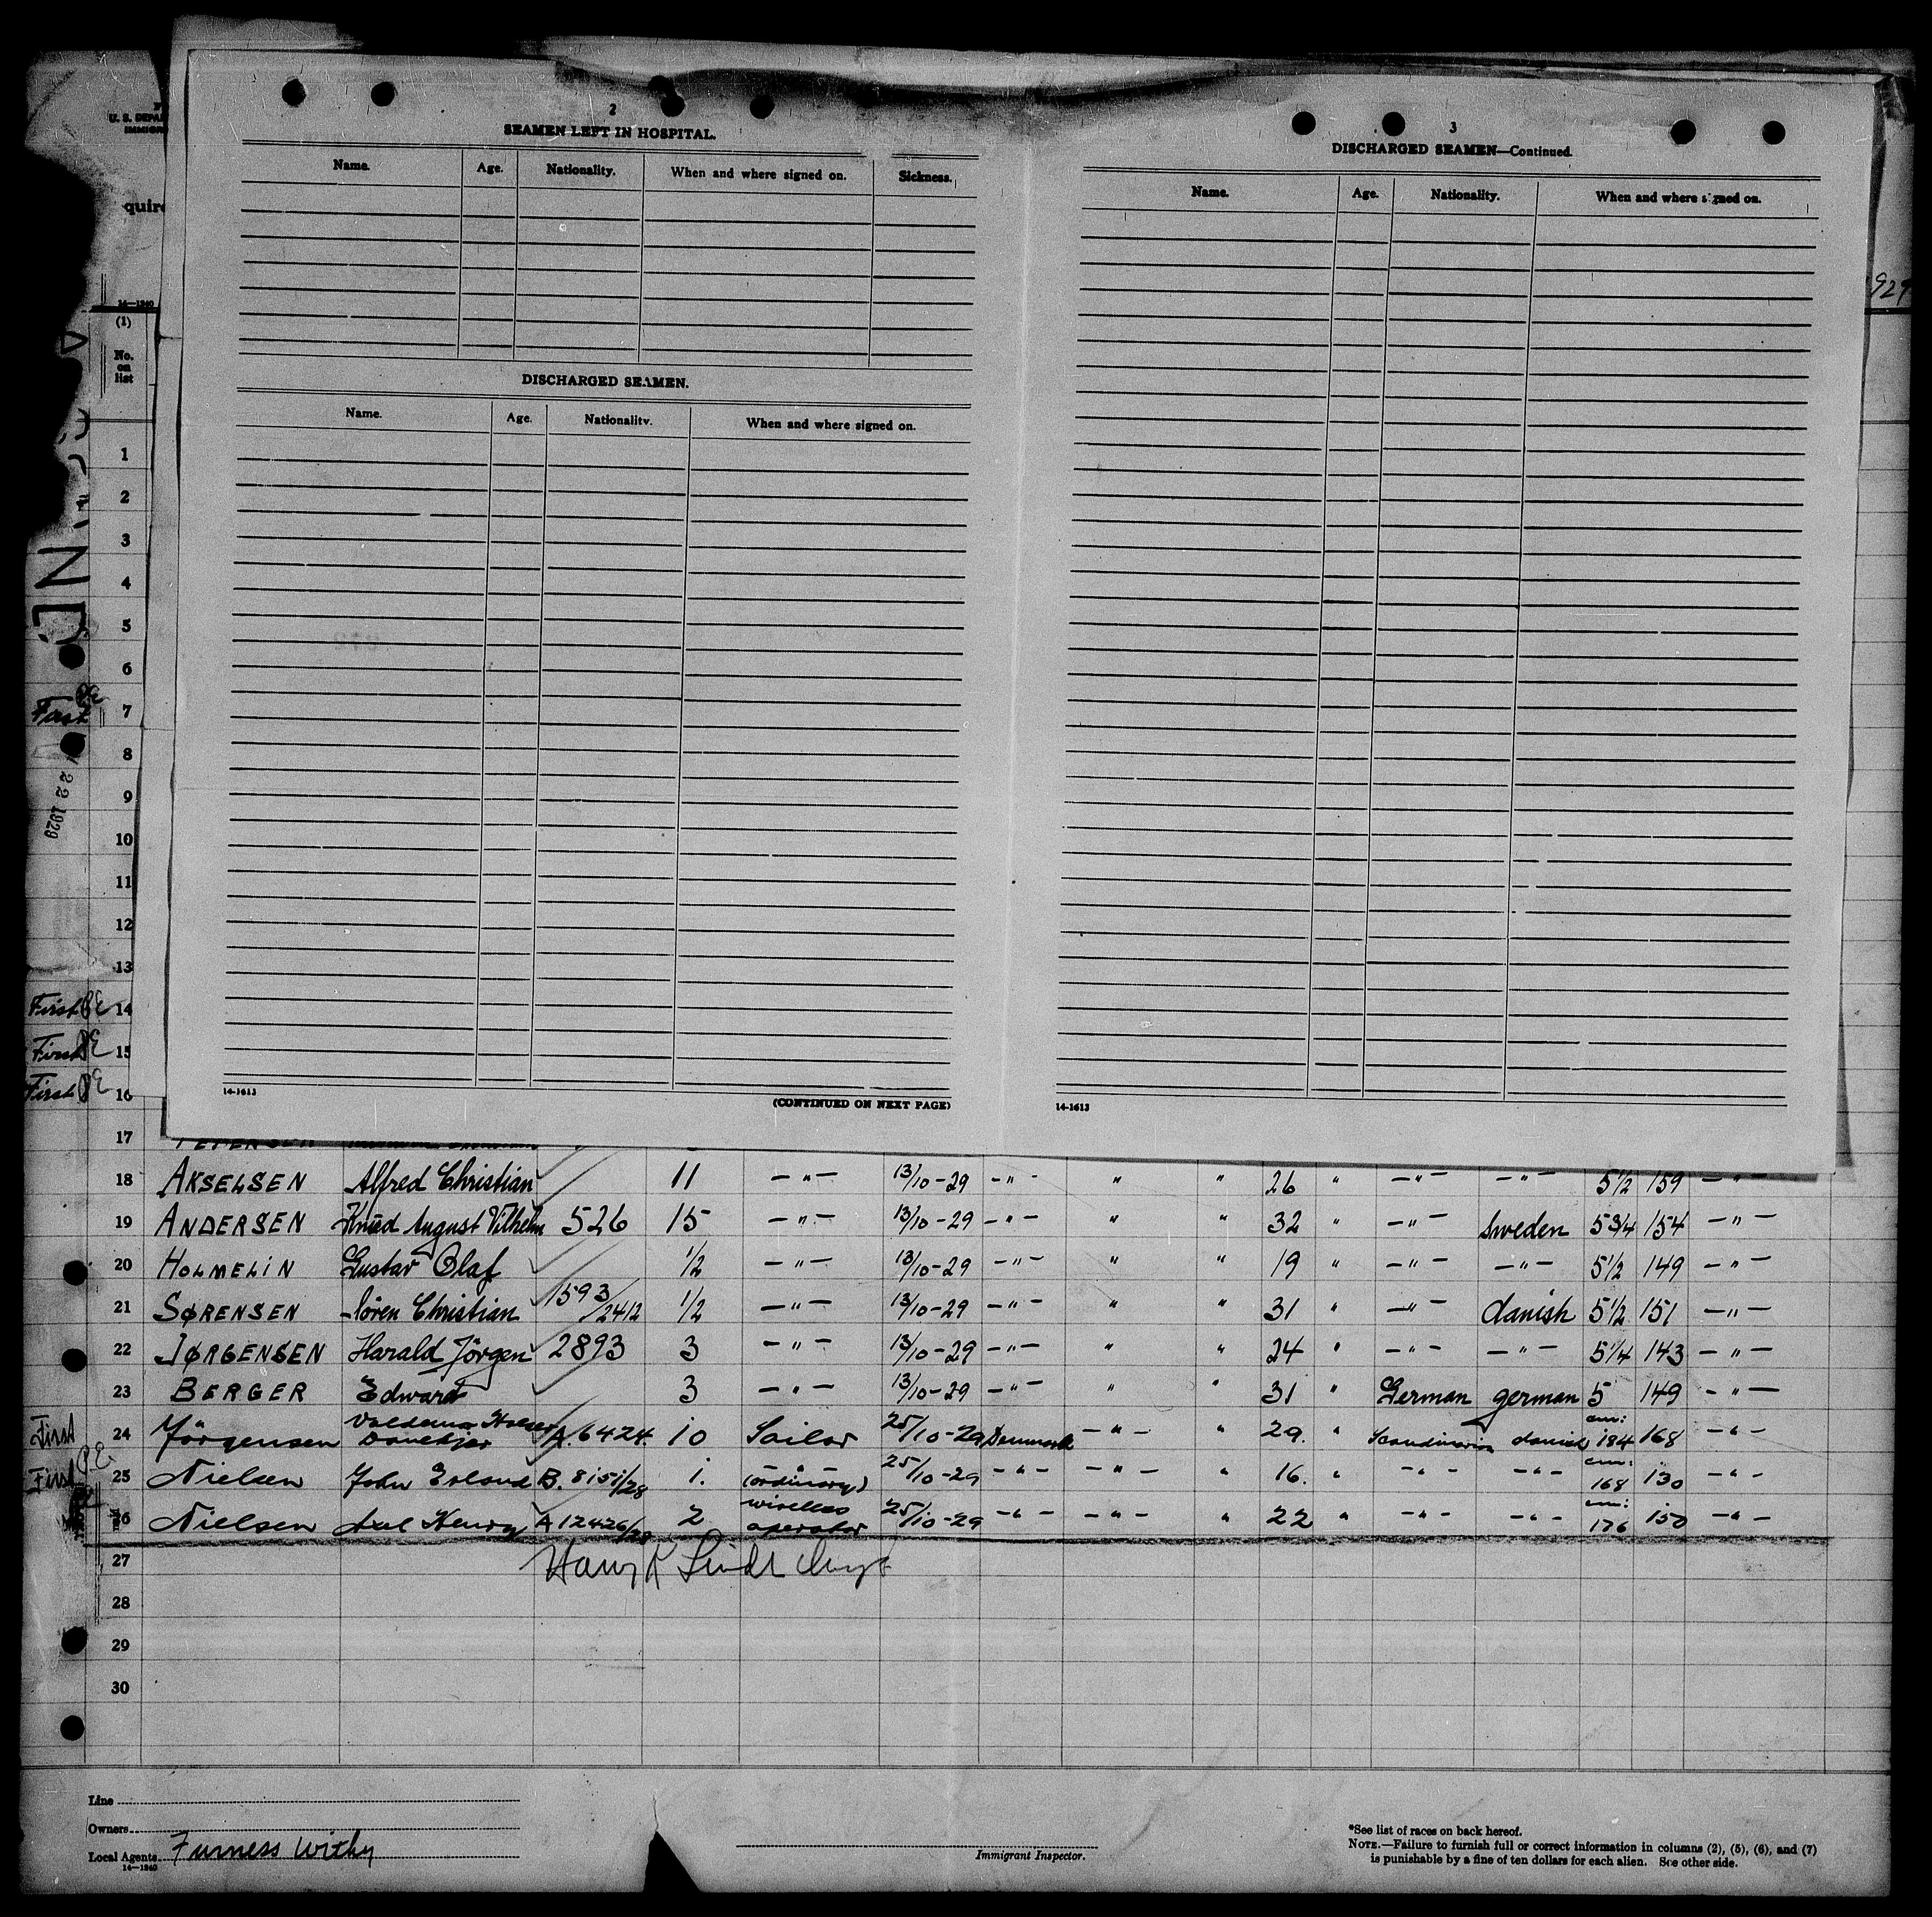 2
SEAMEN LEFT IN HOSPITAL.
Name. Age. Nationality. When and where signed on. Sickness.
DISCHARGED SEAMEN.
Name. Age. Nationality. When and where signed on.
14-1613
(CONTINUED ON NEXT PAGE)
3
DISCHARGED SEAMEN—Continued.
Name. Age. Nationality. When and where signed on.
14-1613
U. S. DEPA
IMMIGR
quire
929
14—1240
(1)
No.
on
list
1
2
3
4
5
6
7
8
9
10
11
12
13
First 14
First 15
First 16
22 1929
17
18 AKSELSEN Alfred Christian 11 —"— 13/10-29 —"— " " 26 " —"— —"— 5½ 159 —"—
19 ANDERSEN Knud August Vilhelm 526 15 —"— 13/10-29 —"— " " 32 " —"— Sweden 5¾ 154 —"—
20 HOLMELIN Gustav Olaf ½ —"— 13/10-29 —"— " " 19 " —"— —"— 5½ 149 —"—
21 SØRENSEN Sören Christian 1593/2412 ½ —"— 13/10-29 —"— " " 31 " —"— danish 5½ 151 —"—
22 JØRGENSEN Harald Jörgen 2893 3 —"— 13/10-29 —"— " " 24 " —"— —"— 5¼ 143 —"—
23 BERGER Edward 3 —"— 13/10-29 —"— " " 31 " German german 5 149 —"—
First 24 Jörgensen A.6424. 10 Sailor 25/10-29 Denmark —"— " 29. " Scandinavian danish cm: 184 168 —"—
First 25 Nielsen John Erland B. 8151/28 1. (ordinary) 25/10-29 —"— —"— " 16. " —"— —"— cm: 168 130 —"—
26 Nielsen Axel Henry A 12426/28 2 wireless operator 25/10-29 —"— —"— " 22 " —"— —"— cm: 176 150 —"—
27
28
29
30
Line
Owners
Local Agents Furness Withy
14—1240
Immigrant Inspector.
*See list of races on back hereof.
NOTE.—Failure to furnish full or correct information in columns (2), (5), (6), and (7)
is punishable by a fine of ten dollars for each alien. See other side.